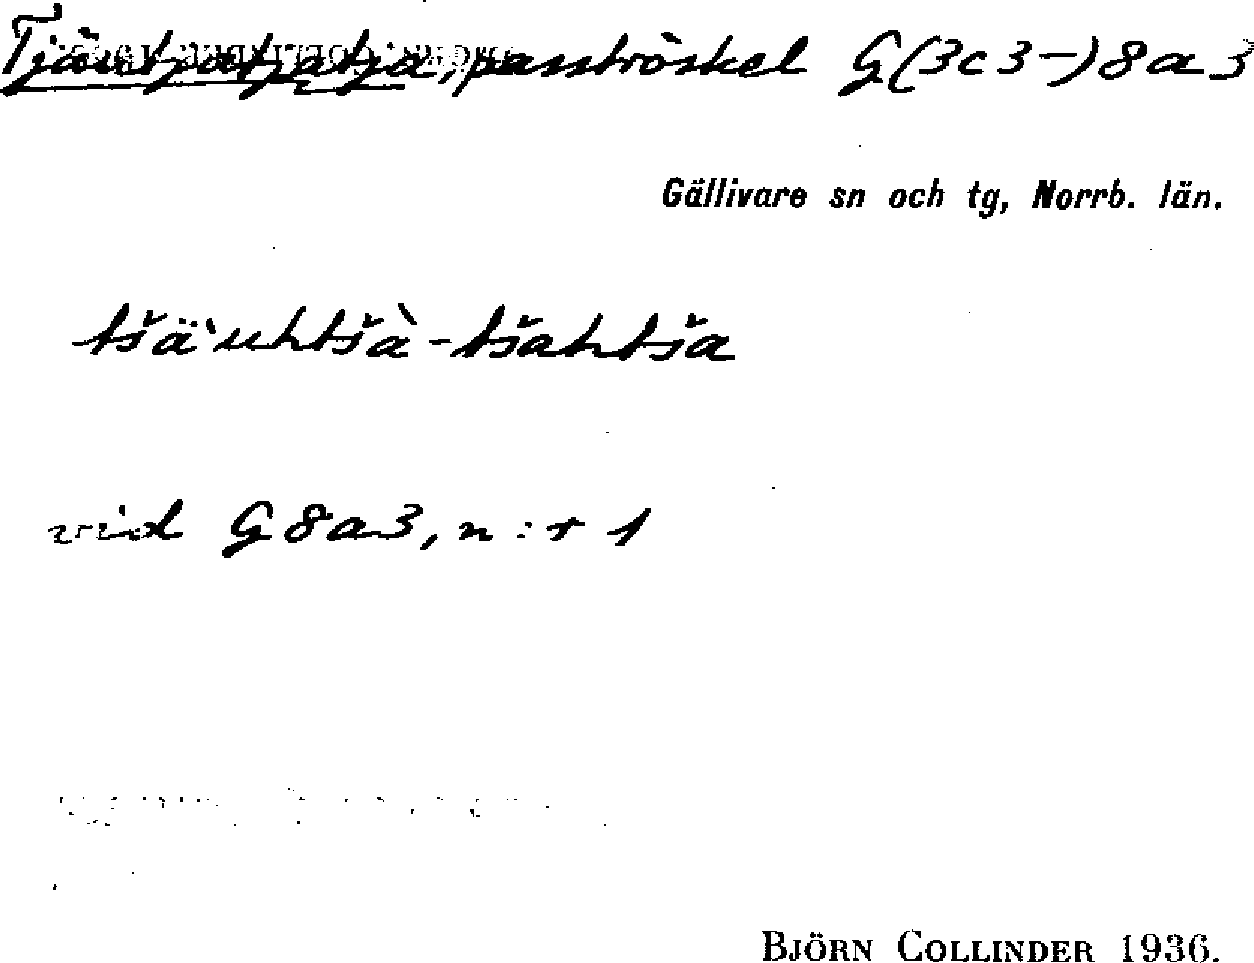 Tjäutjatjatja, pasströskel G(3c3-)8a3
Gällivare sn och tg, Norrb. län.
tšä`uhtšà-tšahtša
vid G8a3, n:r 1
BJÖRN COLLINDER 1936.